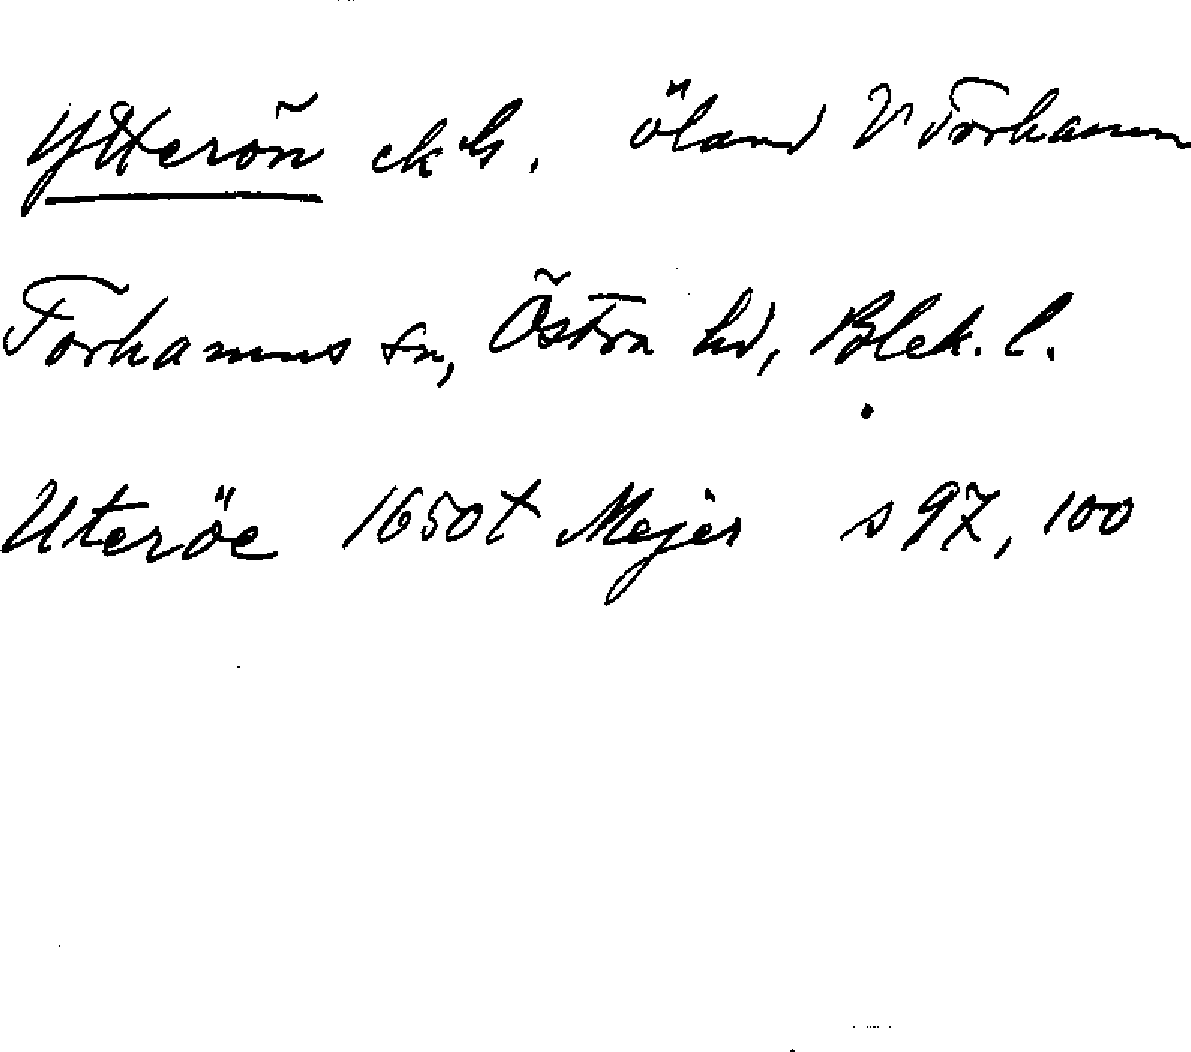 Ytterön ekbl. öland V Torhamn
Torhamns sn, Östra hd, Blek. l.
Uteröe 1650t Mejer s 97, 100